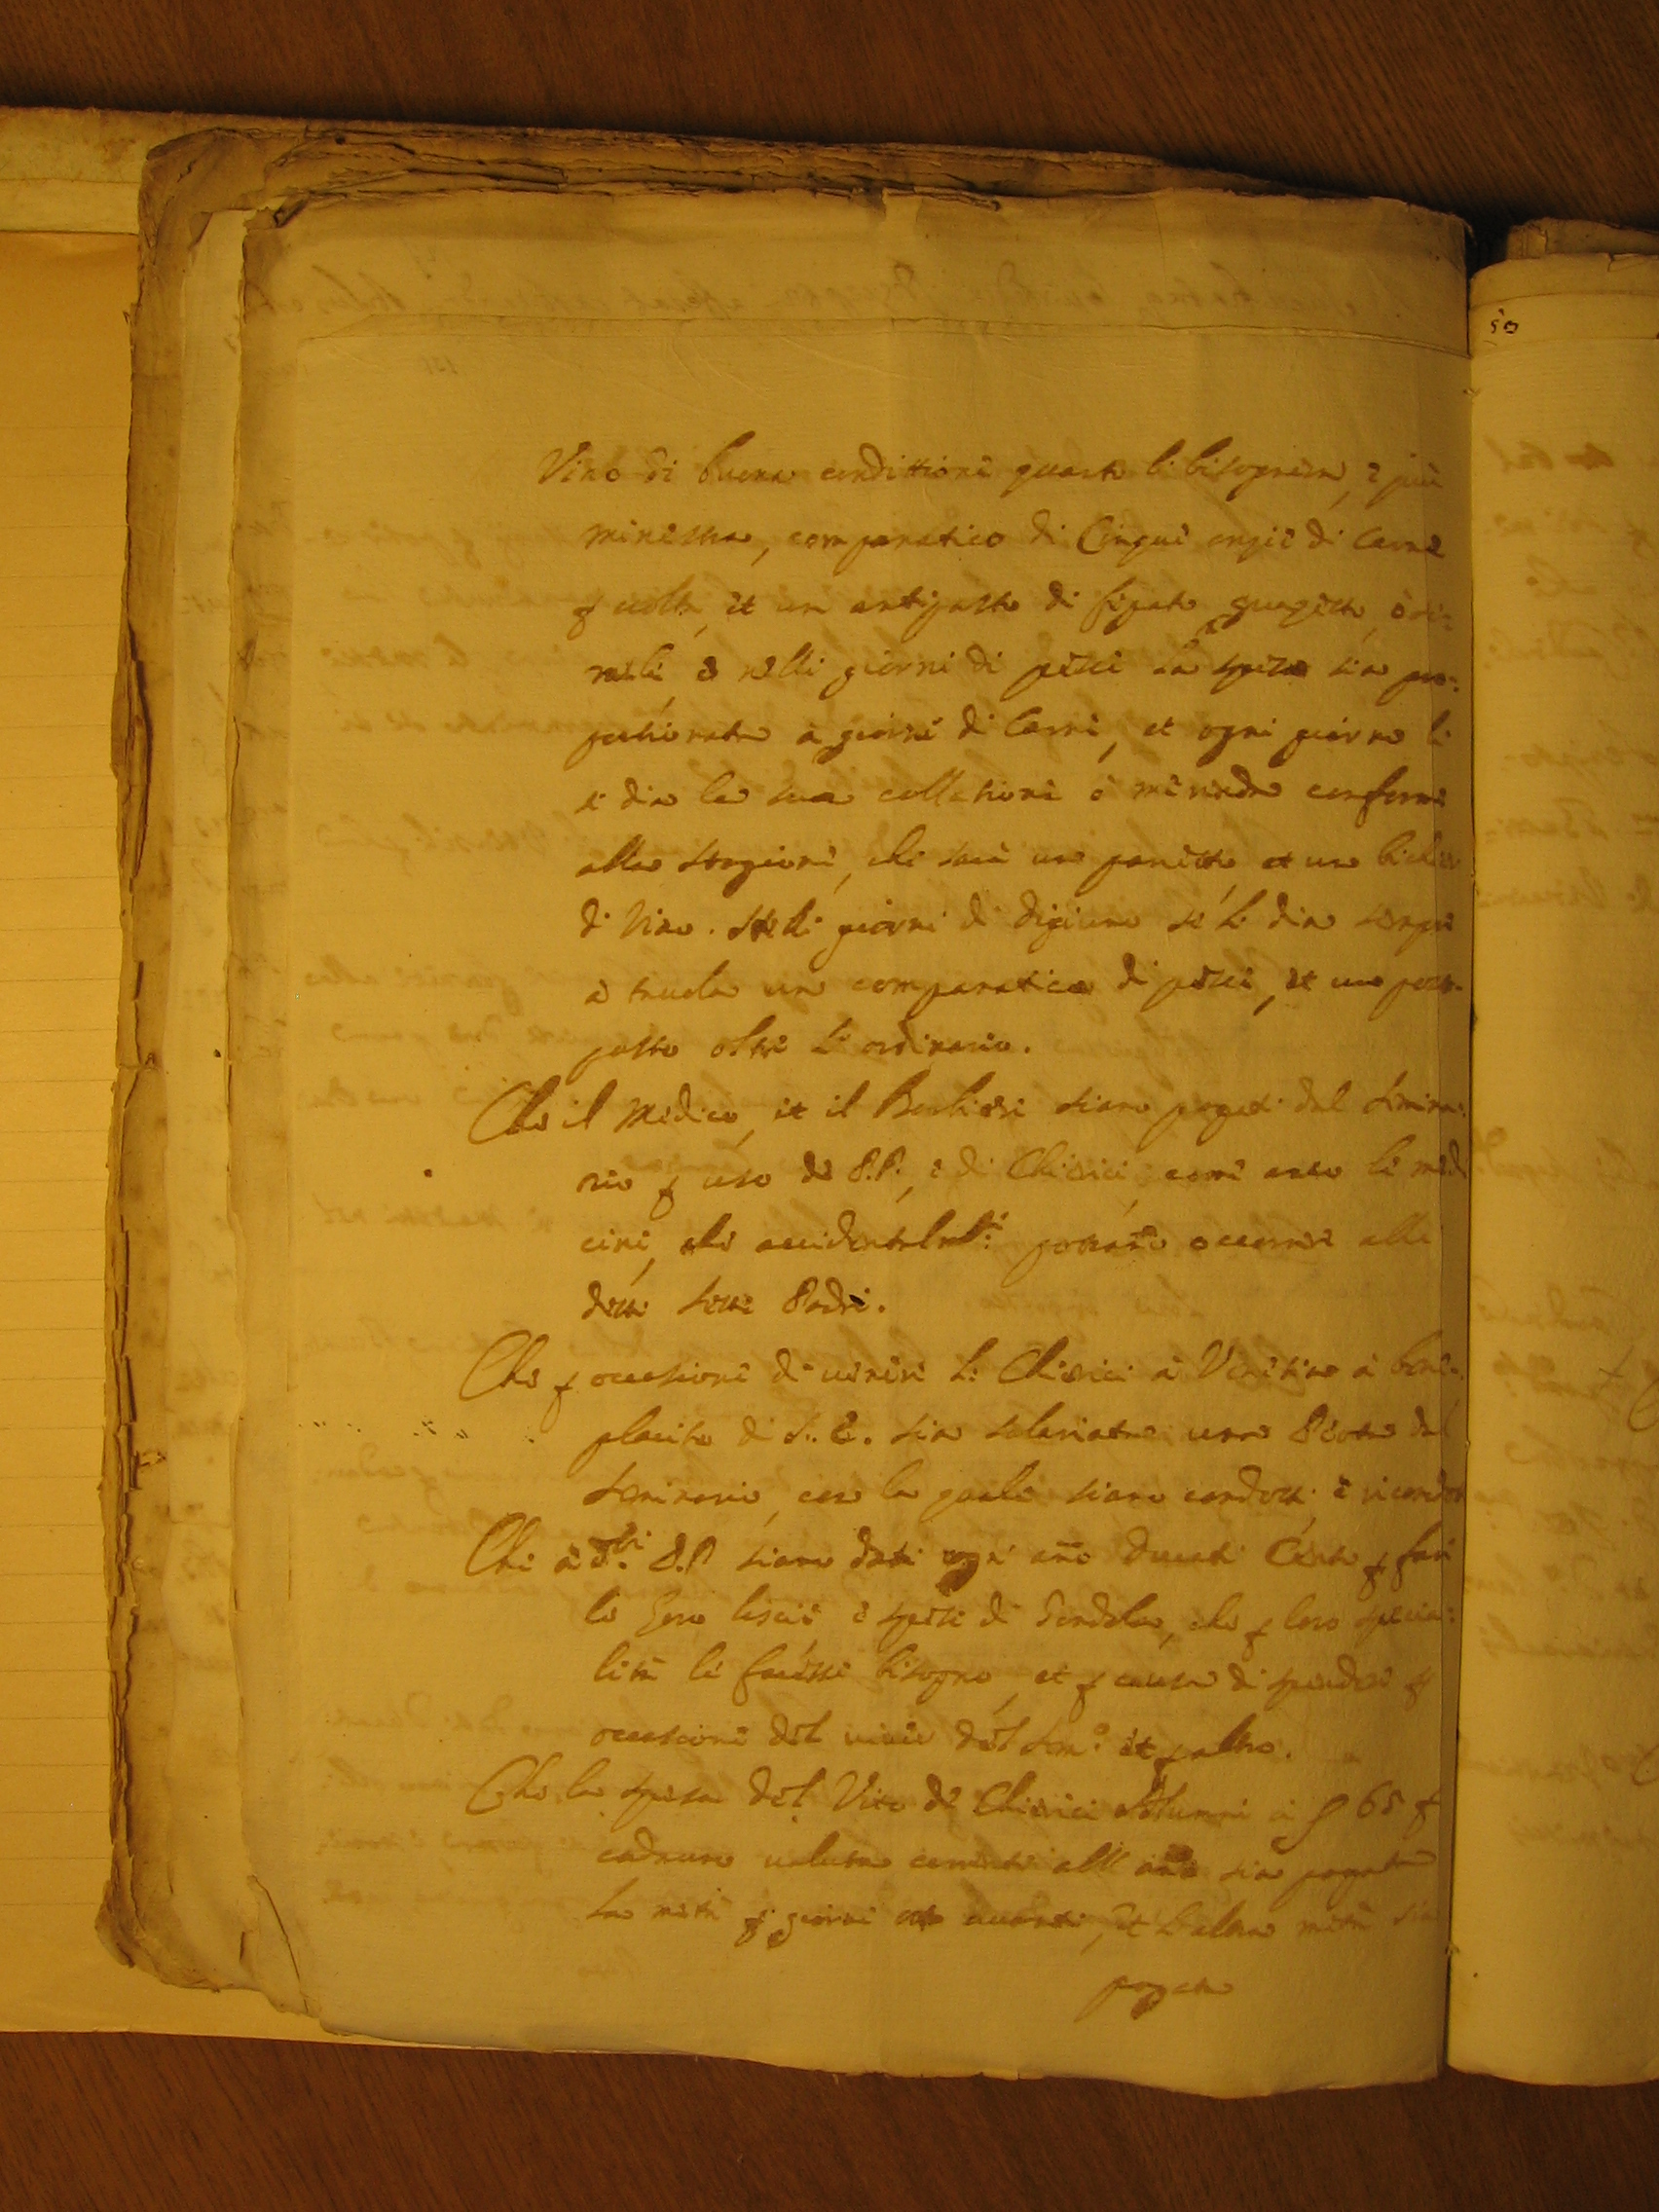 50
Vino di buona condittione quanto li bisognerà, e più
minestra, companatico di Cinque onzie di Carne
per volta, et un antipasto di figato, guazetto, ò si-
mili, e nelli giorni di pesce la spesa sia pro-
portionata a giorni di Carne, et ogni giorno li
si dia la sua collatione ò merenda conforme
alla stagione, che sarà un panetto et un bichier
di Vino. Nelli giorni di digiuno se li dia sempre
à tauola un companatico di pesce, et un post-
pasto oltre l'ordinario.
Che il Medico, et il Barbiere siano pagati dal Semina-
rio per uso de P.P., e di Chierici, come anco le medi
cine, che accidentalmte potranno occorrere alli
detti sette Padri.
Che per occasione di uenire li Chierici à Venetia à bene-
placito di S. E. sia salariata una Peota dal
Seminario, con la quale siano condotti e ricondot
Che à dti P.P. siano dati ogni anno Ducati Cento per fare
le loro liscie e spese di Gondola, che per loro specia-
lità li facesse bisogno, et per causa di spendere per
occasione del uiuer del Semo et per altro.
Che la spesa del Vito de Chierici Alumni à 65 per
cadauno ualuta corrente all' anno sia pagata
la metà per giorni auanti, et l'altra metà sia
pagata